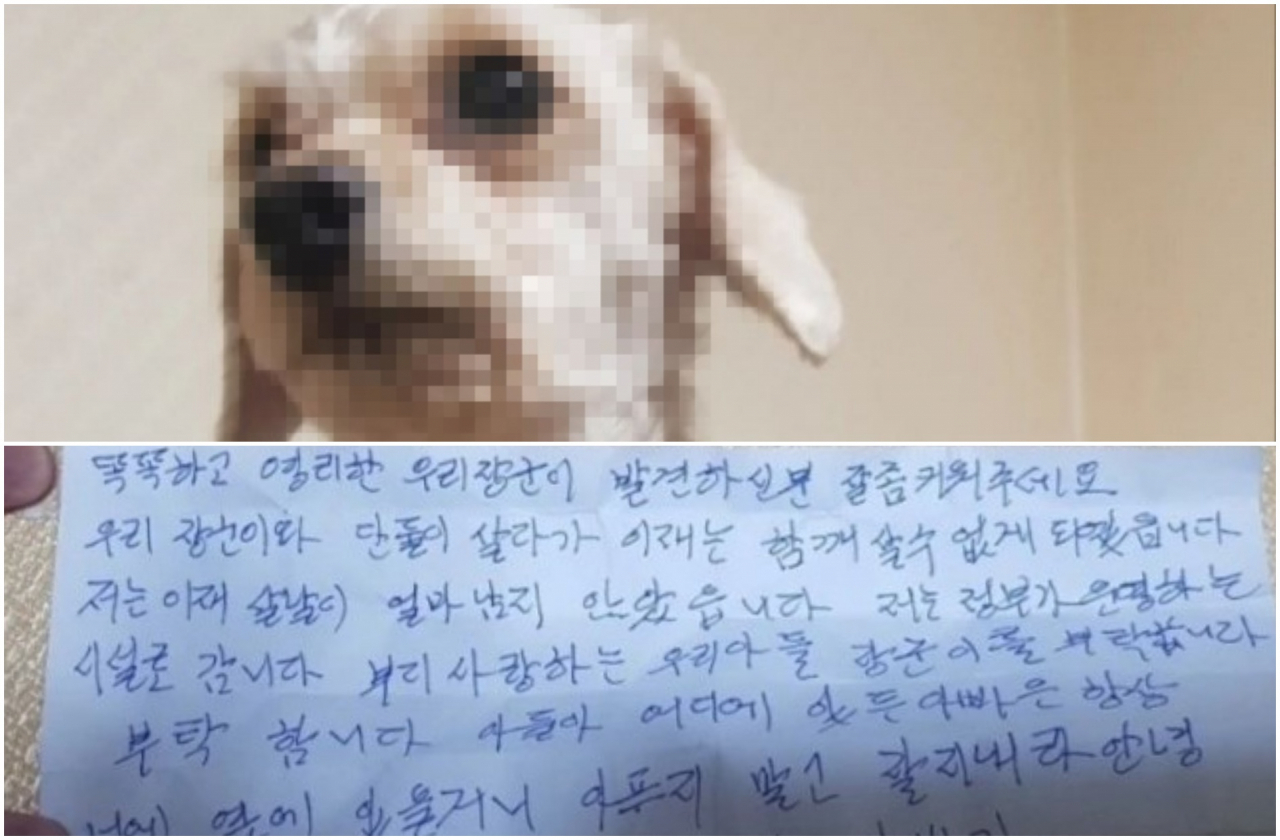 똑똑하고 영리한 우리장군이 발견하신분 잘좀키워주세요
우리 장군이와 단둘이 살다가 이재는 함께 살수 없게 되었읍니다
저는 이재 살날이 얼마남지 안았읍니다 저는 정부가 운영하는
시설로 갑니다 부디 사랑하는 우리아들 장군이를 부탁합니다
부탁 합니다 아들아 어디에 있든 아빠은 항상
너에 옆에 있을거니 아프지 말고 잘지내라 안녕